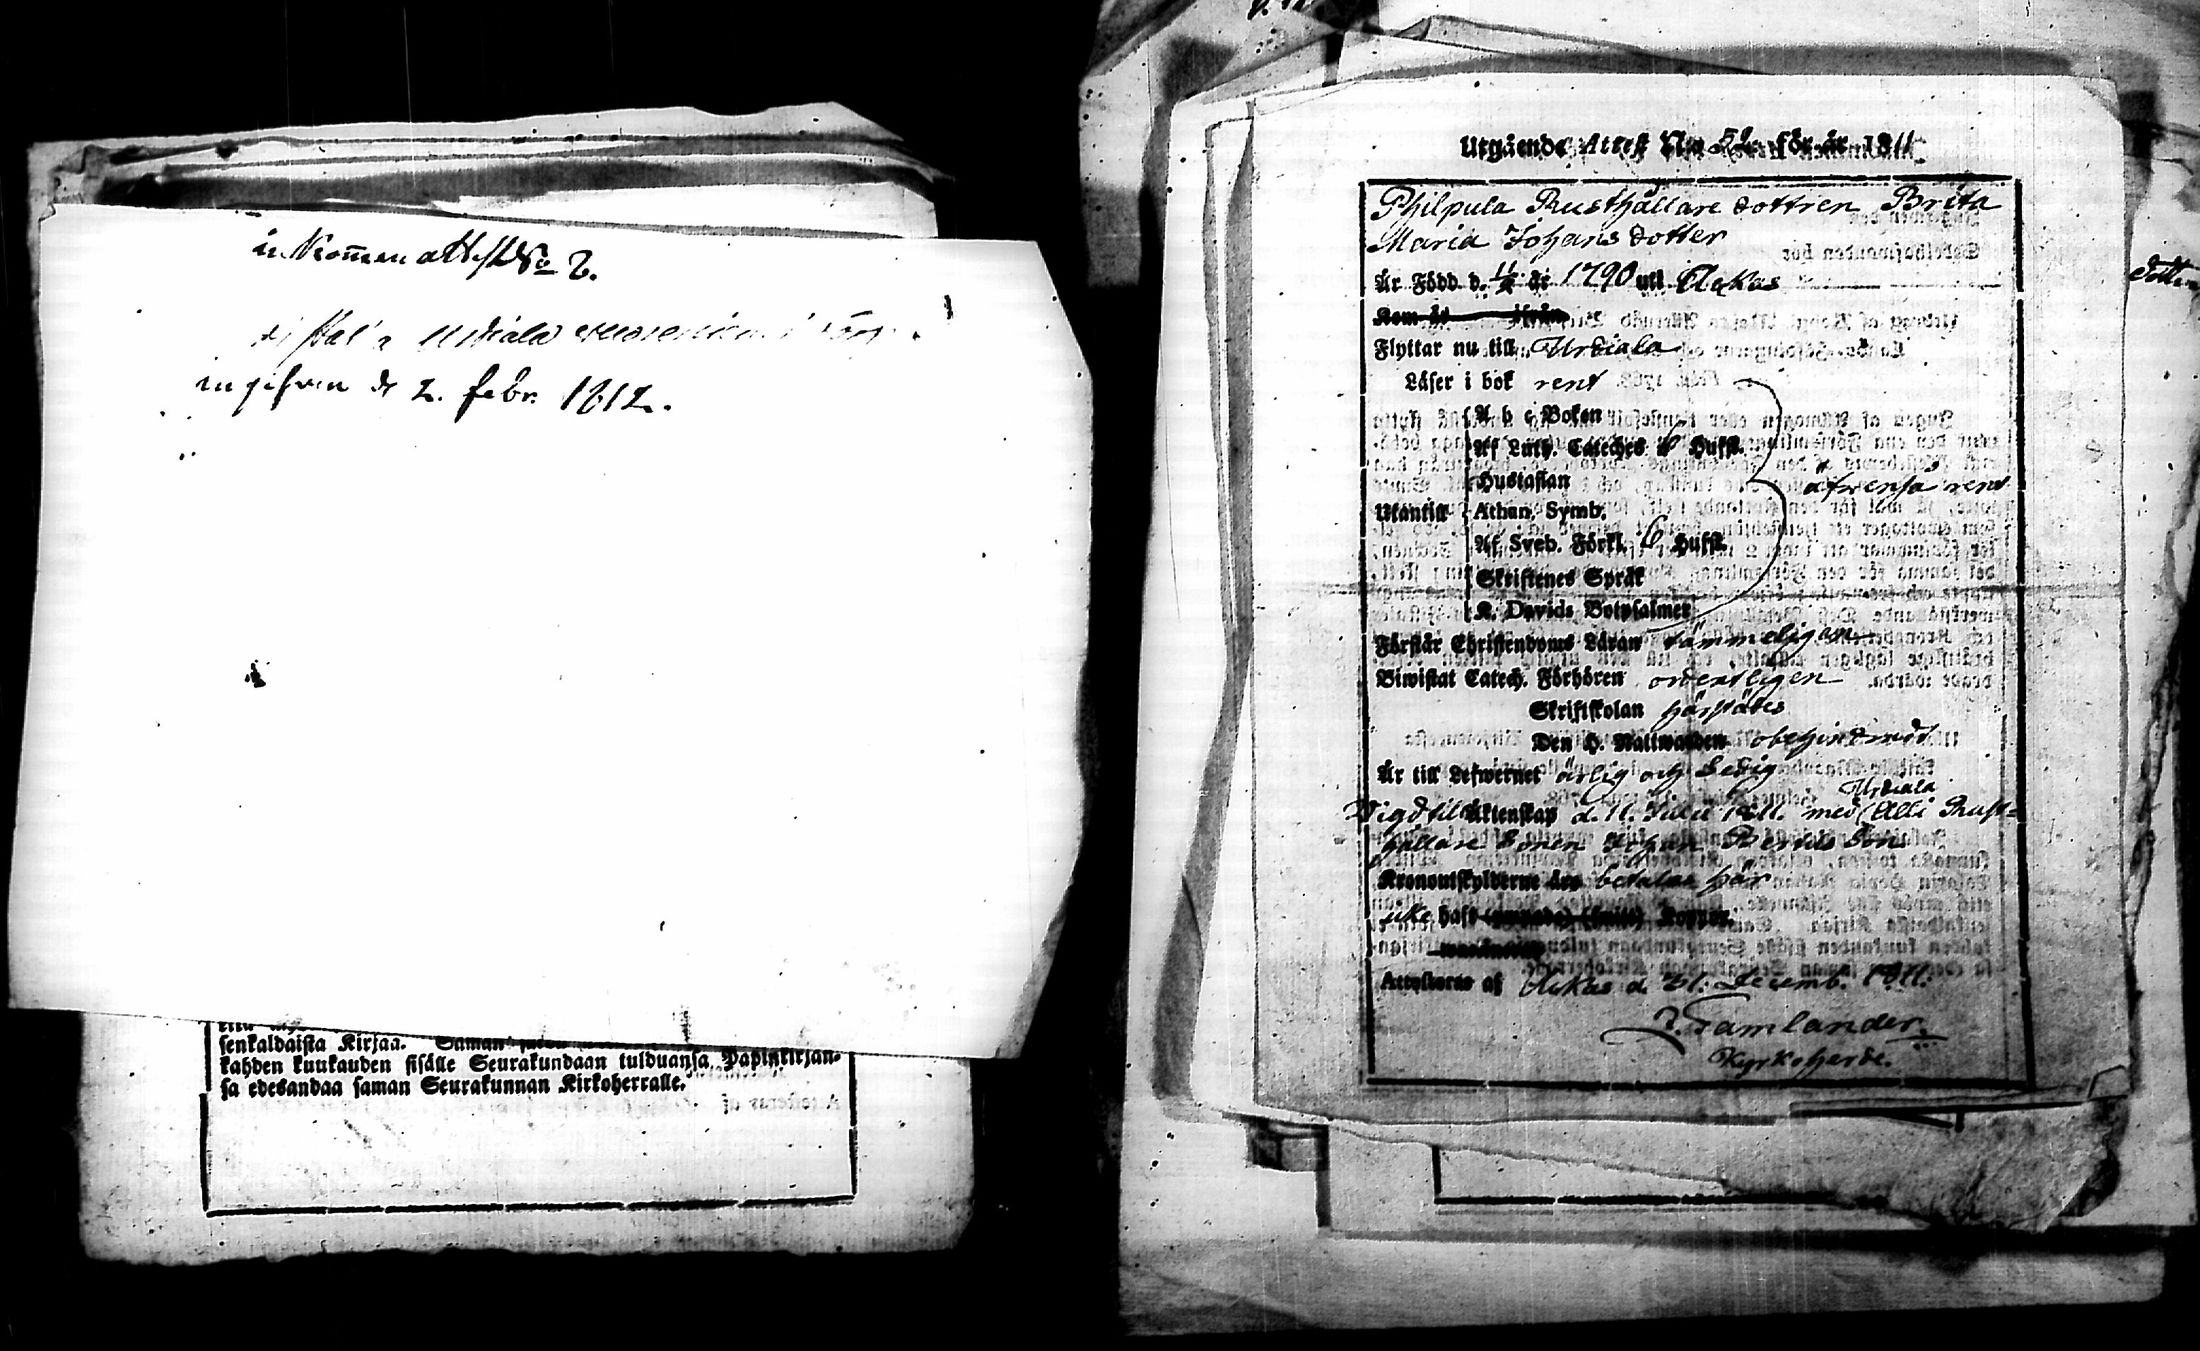 inkommen attest No 2.
Urdiala
ingifven d. 2. febr. 1812.
senkaldaista Kirjaa. Saman
kahden kuukauden sisälle Seurakundaan tulduansa, Papinkirjan-
sa edesandaa saman Seurakunnan Kirkoherralle.
Utgående Attest No 52 för år 1811
Philpula Rusthållare dottren Brita
Maria Johans dotter
Är Född d. år 1790 uti Akkas
Kom år ifrån
Flyttar nu till Urdiala
Läser i bok rent
A b c Boken
Af Luth. Cateches 6 Hufst.
Hustaflan
äfvenså rent
Utantill
Athan. Symb.
Af Sveb. Förkl. 6 Hufst.
Skriftenes Språk
K. Davids Botpsalmer
Förstår Christendoms Läran tämmeligen
Biwistat Catech. Förhören ordentligen
Skriftskolan härstädes
Den H. Nattwarden obehindrad
Är till Lefwernet ärlig och Ledig
Urdiala
Vigd til Äktenskap d. 11. Julii 1811. med Alli Rust-
hållare Sonen Johan Bertils Son
Kronoutskylderne äro betalas här
icke haft Koppor.
Attesteras af Akkas d. 21. Decemb. 1811.
J. Tamlander.
Kyrkoherde.
dotter